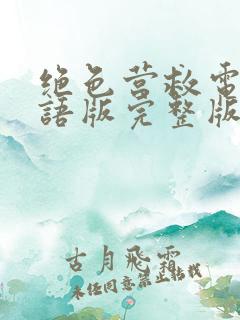 絕色營救電
語版完整版
古月飛霜
未經同意禁止轉載